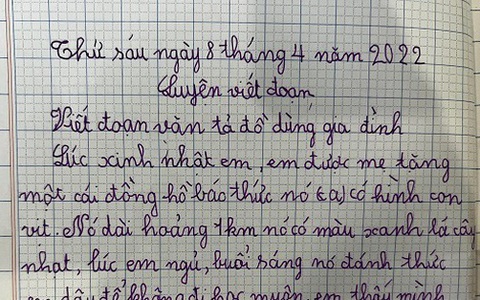 Thứ sáu ngày 8 tháng 4 năm 2022
Luyện viết đoạn
Viết đoạn văn tả đồ dùng gia đình
Lúc xinh nhật em, em được mẹ tặng
một cái đồng hồ báo thức nó (a) có hình con
vịt. Nó dài hoảng 1km nó có màu xanh lá cây
nhạt, lúc em ngủ, buổi sáng nó đánh thức
em dậy để không đi học muộn em thấy mình